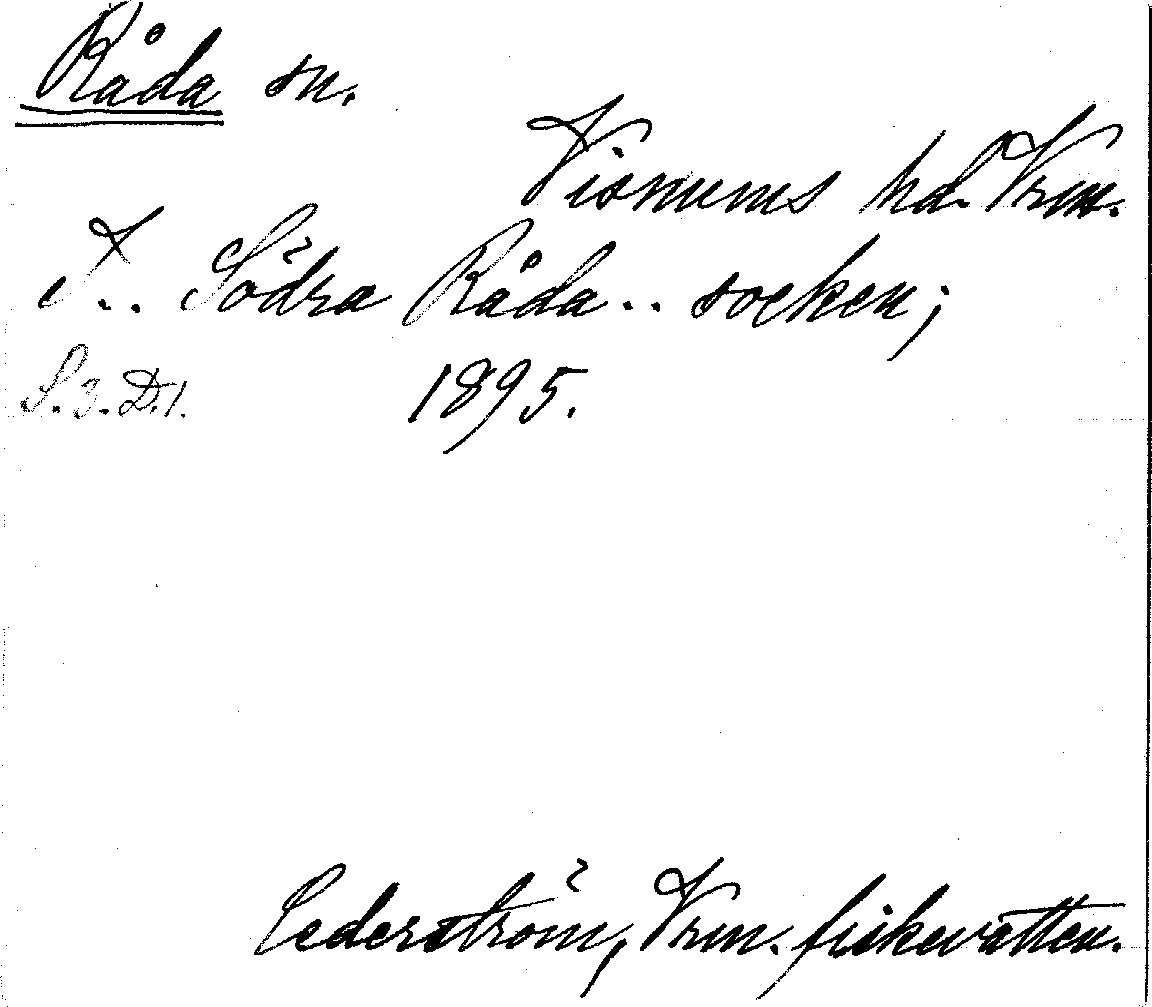 Råda sn.
Visnums hd. Vrm.
I.. Södra Råda.. socken;
S. 3. D. 1.
1895.
Cederström, Vrm. fiskevatten.